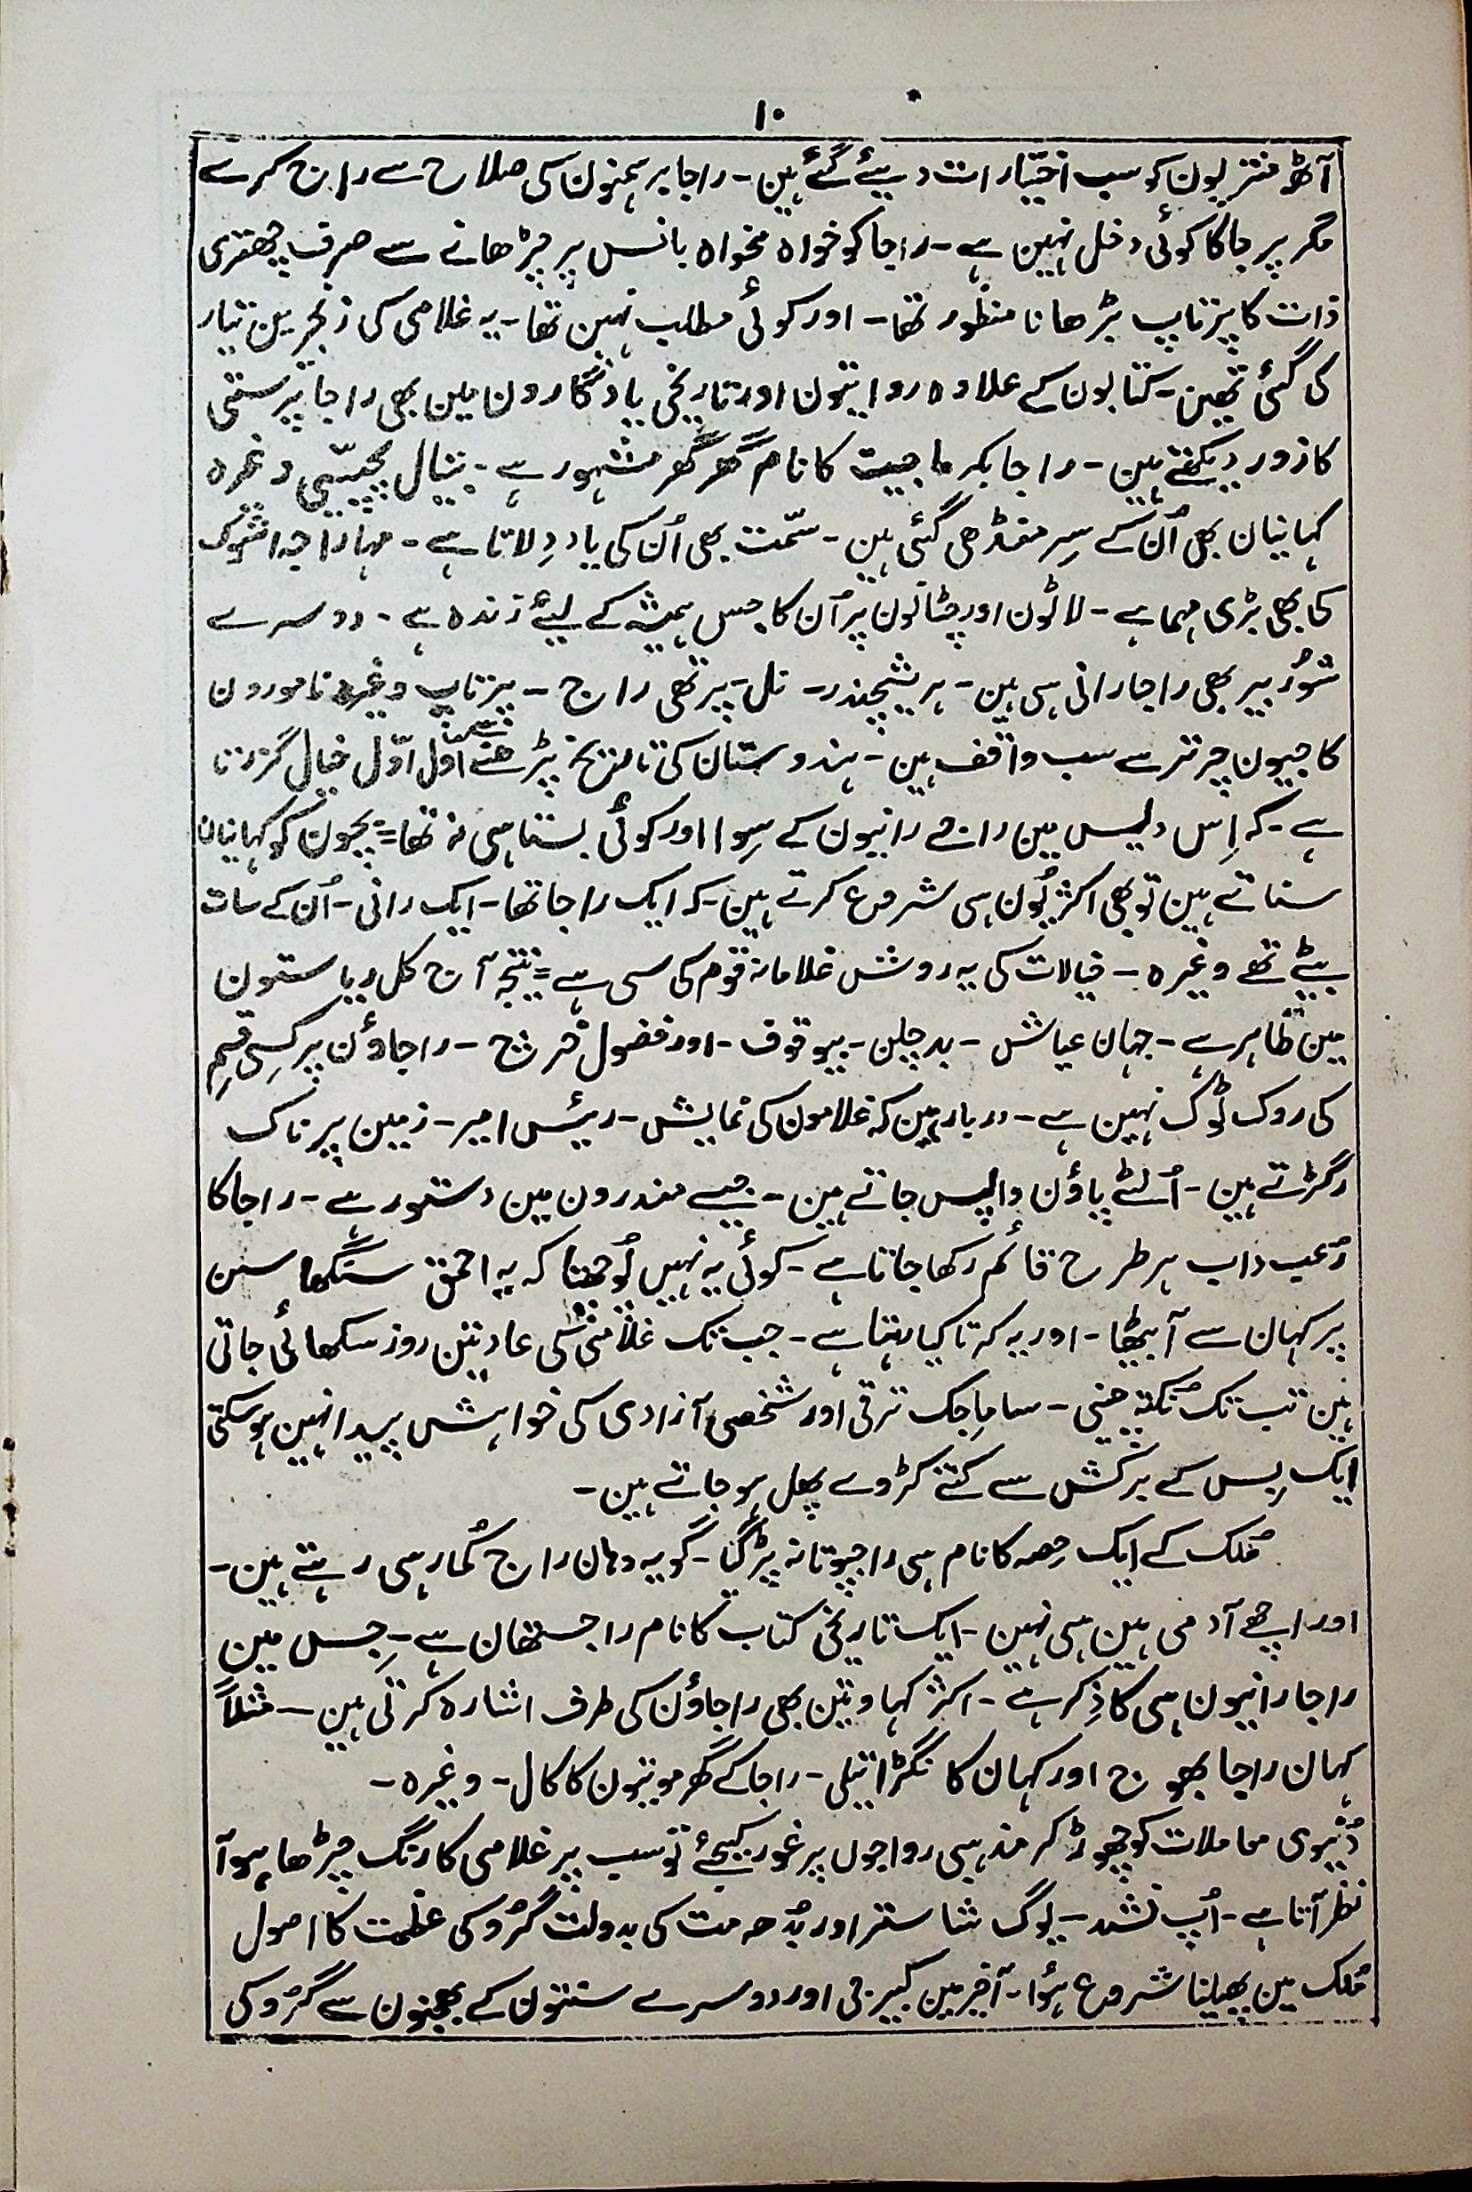 ۱۰
آٹھ منتریون کو سب اختیارات دیئے گئے ہین - راجا برہمنون کی صلاح سے راج کرے
مگر پرجا کا کوئی دخل نہین ہے - راجا کو خواہ مخواہ بانس پر چڑھانے سے صرف چھتری
ذات کا پرتاپ بڑھانا منظور تھا - اور کوئی مطلب نہین تھا - یہ غلامی کی زنجرین تیار
کی گئی تھین - کتابون کے علاوہ روایتون اور تاریخی یادگارون مین بھی راجا پرستی
کا زور دیکھتے ہین - راجا بکرماجیت کا نام گھر گھر مشہور ہے - بتیال پچیسّی وغیرہ
کہانیان بھی اُن کے سِر منڈھی گئی ہین - سمّت بھی اُن کی یاد دِلاتا ہے - مہاراجہ اشوک
کی بھی بڑی مہما ہے - لاٹون اور چٹانون پر اُن کا جس ہمیشہ کے لیئے زندہ ہے - دوسرے
شُور بیر بھی راجا رانی ہی ہین - ہریشچندر - نل - پرتھی راج - پرتاپ وغیرہ نامورون
کا جیون چرتر سے سب واقف ہین - ہندوستان کی تاریخ پڑھتے سمے اول اوّل خیال گزرتا
ہے - کہ اِس دیس مین راجے رانیون کے سِوا اور کوئی بستا ہی نہ تھا = بچون کو کہانیان
سناتے ہین تو بھی اکثر یُون ہی شروع کرتے ہین - کہ ایک راجا تھا - ایک رانی - اُن کے سات
بیٹے تھے وغیرہ - خیالات کی یہ روش غلامانہ قوم کی سی ہے = نتیجہ آج کل ریاستون
مین ظاہر ہے - جہان عیاش - بدچلن - بیوقوف - اور فضول خرچ - راجاؤن پر کسِی قسِم
کی روک ٹوک نہین ہے - دربار ہین کہ غلامون کی نمایش - رئیس امیر - زمین پر ناک
رگڑتے ہین - اُلٹے پاؤن واپس جاتے ہین - جیسے مندرون مین دستور ہے - راجا کا
رُعب داب ہر طرح قائم رکھا جاتا ہے - کوئی یہ نہیں پُوچھتا کہ یہ احمق سنگھاسن
پر کہان سے آ بیٹھا - اور یہ کرتا کیا رہتا ہے - جب تک غلامی کی عادیتن روز سکھائی جاتی
ہین تب تک نکتہ چینی - ساماجک ترقی اور شخصی آزادی کی خواہش پیدا نہین ہو سکتی
ایک بِس کے برکش سے کتنے کڑوے پھل ہو جاتے ہین -
مُلک کے ایک حِصہ کا نام ہی راجپوتانہ پڑ گیا - گویہ وہان راج کُمار ہی رہتے ہین -
اور اچھے آدمی ہین ہی نہین - ایک تاریخی کتاب کا نام راجستھان ہے - جِس مین
راجا رانیون ہی کا ذِکر ہے - اکثر کہاوتین بھی راجاؤن کی طرف اشارہ کرتی ہین - مثلاً
کہان راجا بھوج اور کہان کا نگڑا تیلی - راجا کے گھر موتیون کا کال - وغیرہ -
دُنیوی معاملات کو چھوڑ کر مذہبی رواجوں پر غور کیجئے تو سب پر غلامی کا رنگ چڑھا ہوآ
نظر آتا ہے - اُپ نشد - یوگ شاستر اور بُدھ مت کی بدولت گرُو کی عظمت کا اصول
مُلک مین پھیلنا شروع ہوُا - آخر مین کبیر جی اور دوسرے سنتون کے بھجنون سے گرُو کی